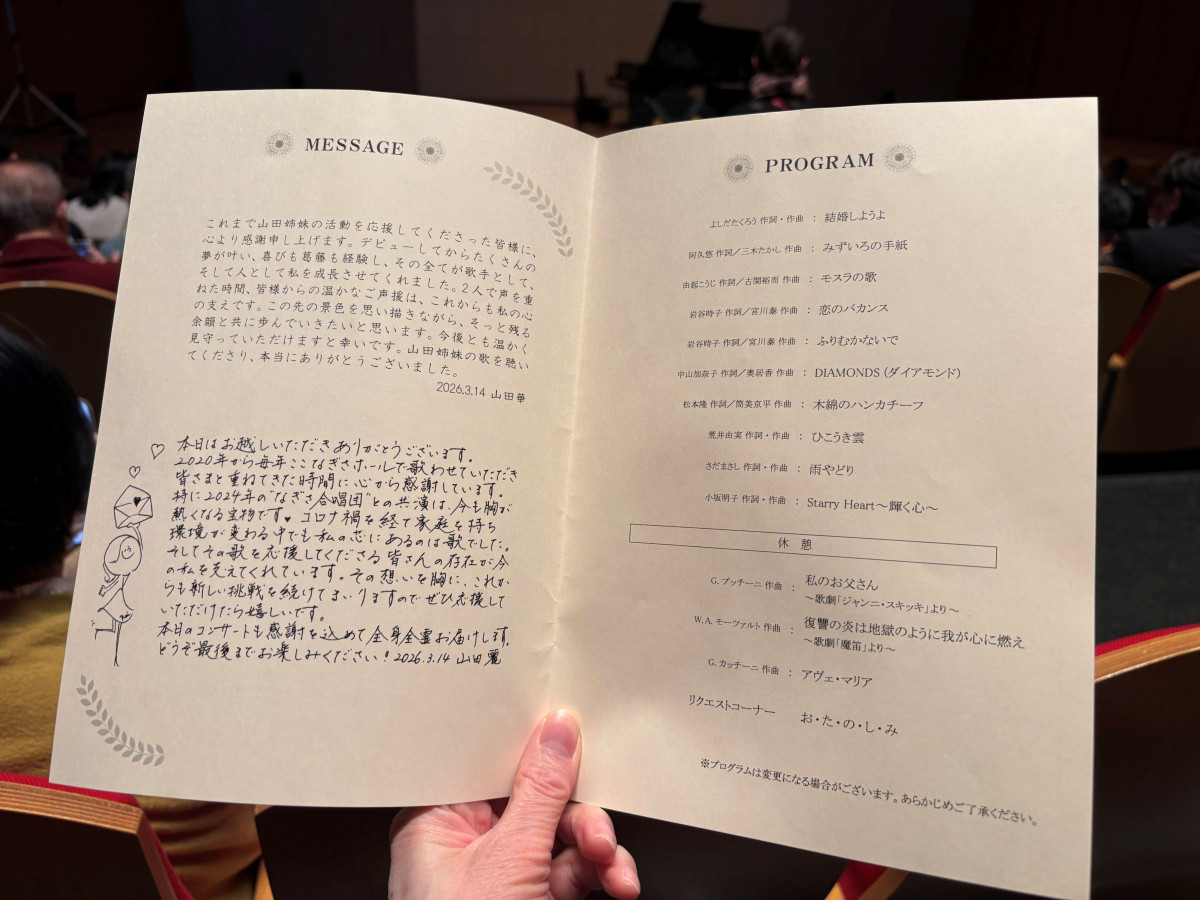 MESSAGE
これまで山田姉妹の活動を応援してくださった皆様に、
心より感謝申し上げます。デビューしてからたくさんの
夢が叶い、喜びも葛藤も経験し、その全てが歌手として、
そして人として私を成長させてくれました。2人で声を重
ねた時間、皆様からの温かなご声援は、これからも私の心
の支えです。この先の景色を思い描きながら、そっと残る
余韻と共に歩んでいきたいと思います。今後とも温かく
見守っていただけますと幸いです。山田姉妹の歌を聴い
てくださり、本当にありがとうございました。
2026.3.14 山田華
本日はお越しいただきありがとうございます。
2020年から毎年ここなぎさホールで歌わせていただき
皆さまと重ねてきた時間に心から感謝しています。
特に2024年の"なぎさ合唱団"との共演は、今も胸が
熱くなる宝物です♥ コロナ禍を経て家庭を持ち
環境が変わる中でも私の芯にあるのは歌でした。
そしてその歌を応援してくださる皆さんの存在が今
の私を支えてくれています。その想いを胸に、これか
らも新しい挑戦を続けてまいりますのでぜひ応援して
いただけたら嬉しいです。
本日のコンサートも感謝を込めて全身全霊お届けします。
どうぞ最後までお楽しみください! 2026.3.14 山田麗
PROGRAM
よしだたくろう 作詞・作曲 : 結婚しようよ
阿久悠 作詞/三木たかし 作曲 : みずいろの手紙
由起こうじ 作詞/古関裕而 作曲 : モスラの歌
岩谷時子 作詞/宮川泰 作曲 : 恋のバカンス
岩谷時子 作詞/宮川泰 作曲 : ふりむかないで
中山加奈子 作詞/奥居香 作曲 : DIAMONDS(ダイアモンド)
松本隆 作詞/筒美京平 作曲 : 木綿のハンカチーフ
荒井由実 作詞・作曲 : ひこうき雲
さだまさし 作詞・作曲 : 雨やどり
小坂明子 作詞・作曲 : Starry Heart〜輝く心〜
休 憩
G. プッチーニ 作曲 : 私のお父さん
〜歌劇「ジャンニ・スキッキ」より〜
W.A. モーツァルト 作曲 : 復讐の炎は地獄のように我が心に燃え
〜歌劇「魔笛」より〜
G. カッチーニ 作曲 : アヴェ・マリア
リクエストコーナー お・た・の・し・み
※プログラムは変更になる場合がございます。あらかじめご了承ください。